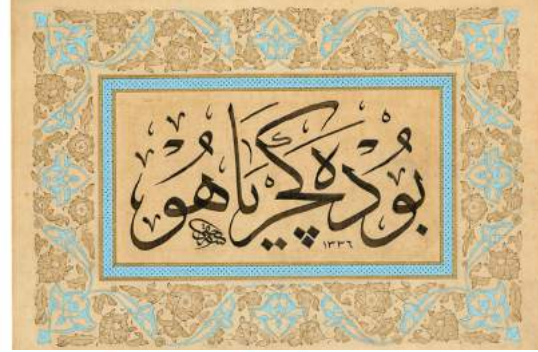 بو ده كچر ياهو
١٣٣٦